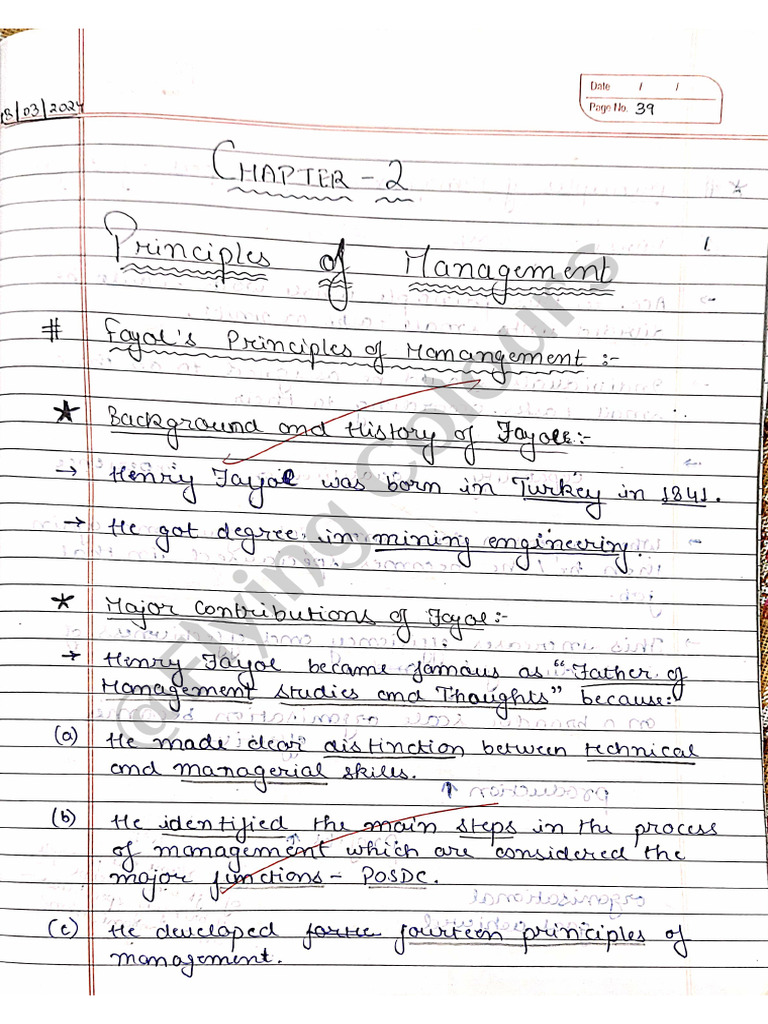 18/03/2024
Date / /
Page No. 39
CHAPTER - 2
Principles of Management
# Fayol's Principles of Mamangement :-
★ Background and History of Fayol:-
→ Henry Fayol was born in Turkey in 1841.
→ He got degree in mining engineering.
★ Major Contributions of Fayol:-
→ Henry Fayol became famous as "Father of
Management studies and Thoughts" because:
(a) He made clear distinction between technical
and managerial skills.
(b) He identified the main steps in the process
of management which are considered the
major functions - POSDC.
(c) He developed fourteen principles of
management.
@Flying Colours